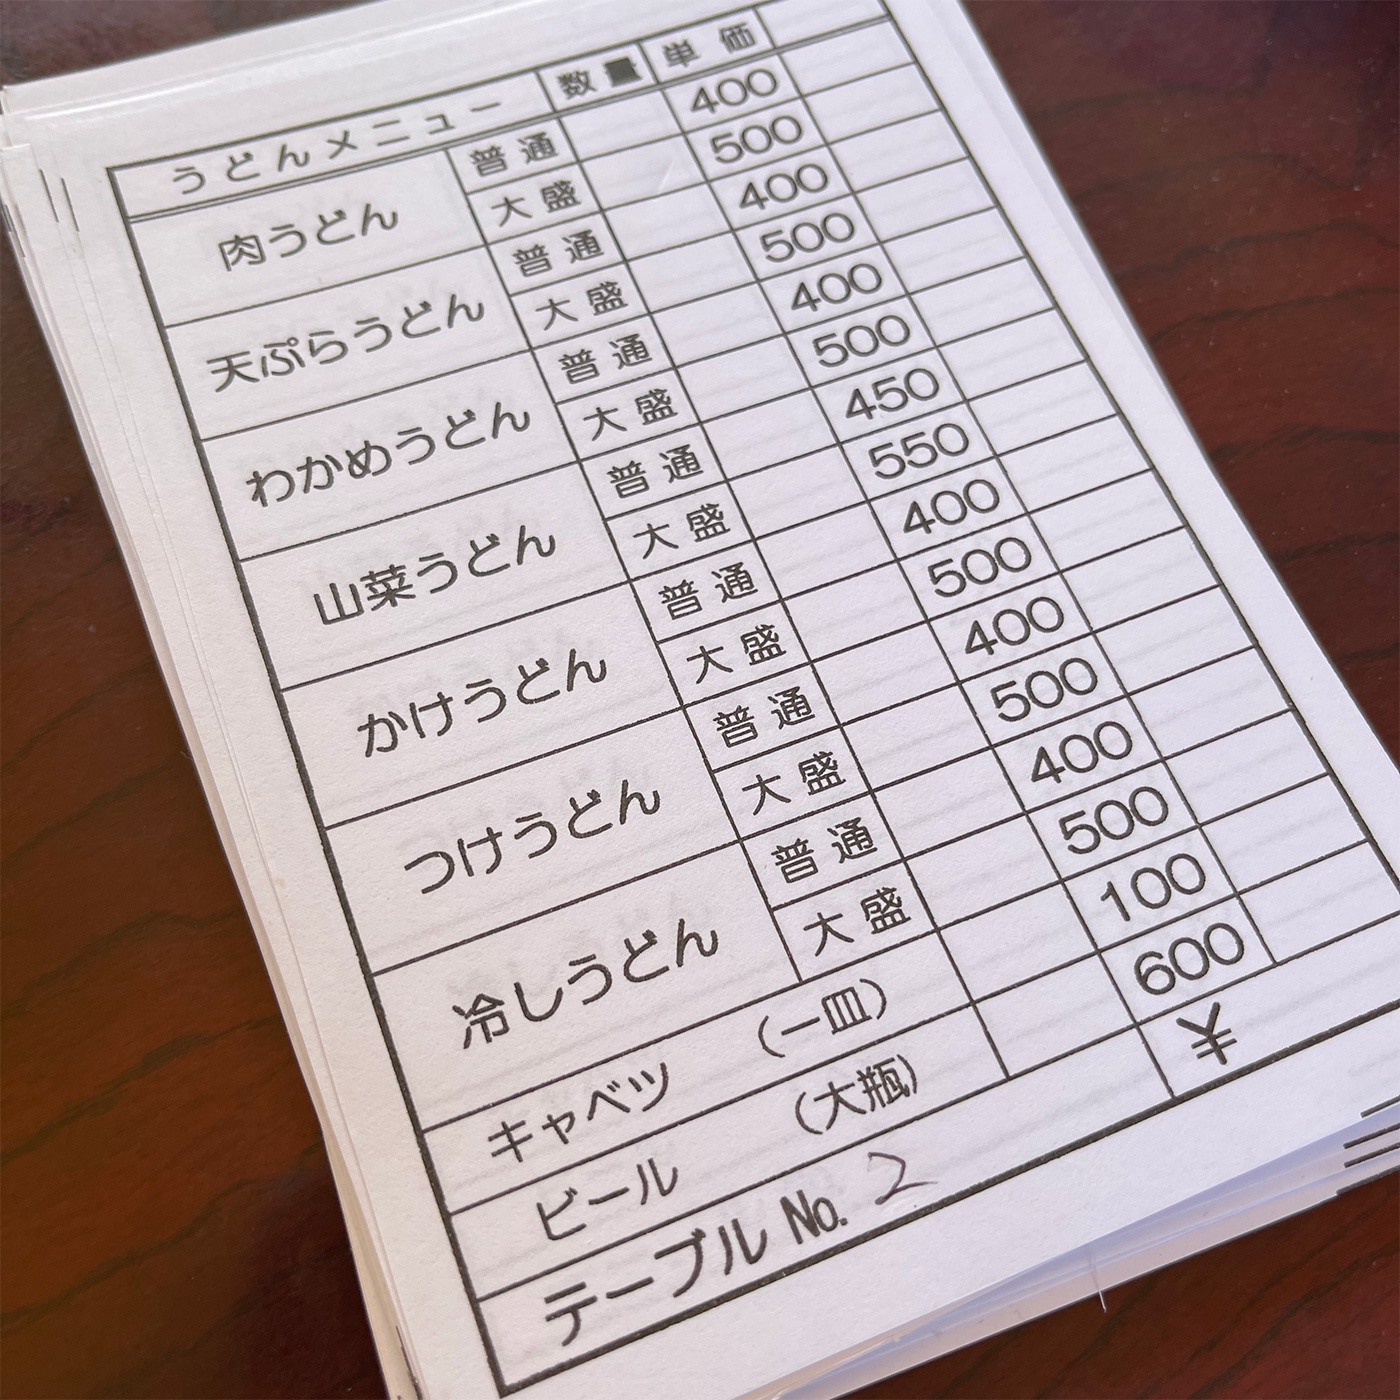 うどんメニュー 数量 単価
肉うどん 普通 400
大盛 500
天ぷらうどん 普通 400
大盛 500
わかめうどん 普通 400
大盛 500
山菜うどん 普通 450
大盛 550
かけうどん 普通 400
大盛 500
つけうどん 普通 400
大盛 500
冷しうどん 普通 400
大盛 500
キャベツ (一皿) 100
ビール (大瓶) 600
テーブル No. 2 ¥